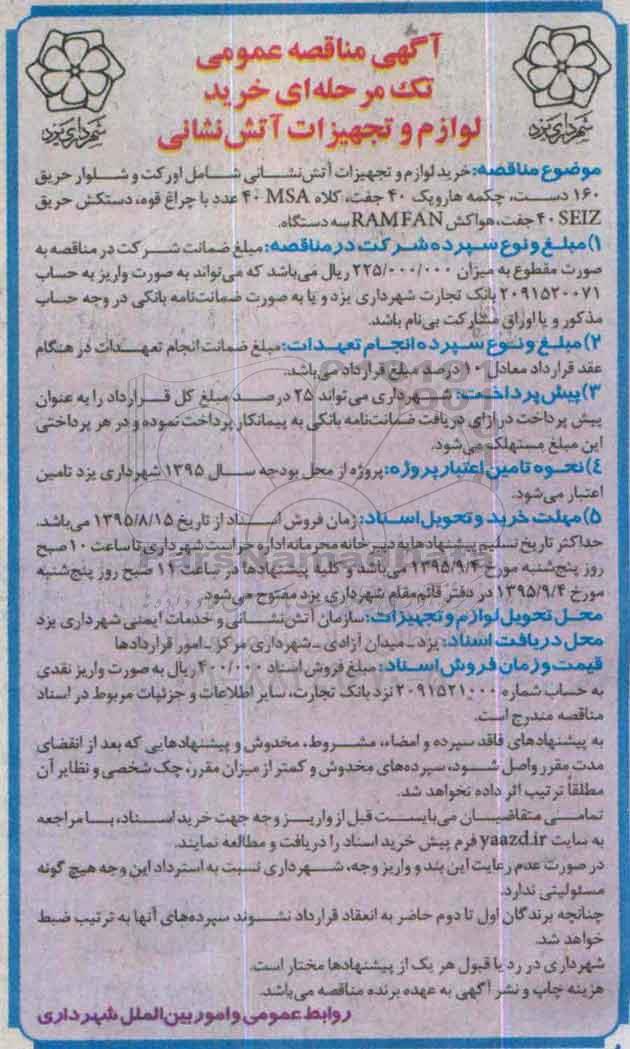 آگهی مناقصه عمومی
تک مرحله‌ای خرید
لوازم و تجهیزات آتش‌نشانی
شهرداری یزد
شهرداری یزد
موضوع مناقصه: خرید لوازم و تجهیزات آتش‌نشانی شامل اورکت و شلوار حریق
۱۶۰ دست، چکمه هارویک ۴۰ جفت، کلاه MSA ۴۰ عدد با چراغ قوه، دستکش حریق
SEIZ ۴۰ جفت، هواکش RAMFAN سه دستگاه.
۱) مبلغ و نوع سپرده شرکت در مناقصه: مبلغ ضمانت شرکت در مناقصه به
صورت مقطوع به میزان ۲۲۵/۰۰۰/۰۰۰ ریال می‌باشد که می‌تواند به صورت واریز به حساب
۲۰۹۱۵۲۰۰۷۱ بانک تجارت شهرداری یزد و یا به صورت ضمانت‌نامه بانکی در وجه حساب
مذکور و یا اوراق مشارکت بی‌نام باشد.
۲) مبلغ و نوع سپرده انجام تعهدات: مبلغ ضمانت انجام تعهدات در هنگام
عقد قرارداد معادل ۱۰ درصد مبلغ قرارداد می‌باشد.
۳) پیش پرداخت: شهرداری می‌تواند ۲۵ درصد مبلغ کل قرارداد را به عنوان
پیش پرداخت در ازای دریافت ضمانت‌نامه بانکی به پیمانکار پرداخت نموده و در هر پرداختی
این مبلغ مستهلک می‌شود.
۴) نحوه تامین اعتبار پروژه: پروژه از محل بودجه سال ۱۳۹۵ شهرداری یزد تامین
اعتبار می‌شود.
۵) مهلت خرید و تحویل اسناد: زمان فروش اسناد از تاریخ ۱۳۹۵/۸/۱۵ می‌باشد.
حداکثر تاریخ تسلیم پیشنهادها به دبیرخانه محرمانه اداره حراست شهرداری تا ساعت ۱۰ صبح
روز پنج‌شنبه مورخ ۱۳۹۵/۹/۴ می‌باشد و کلیه پیشنهادها در ساعت ۱۱ صبح روز پنج‌شنبه
مورخ ۱۳۹۵/۹/۴ در دفتر قائم‌مقام شهرداری یزد مفتوح می‌شود.
محل تحویل لوازم و تجهیزات: سازمان آتش‌نشانی و خدمات ایمنی شهرداری یزد
محل دریافت اسناد: یزد ـ میدان آزادی ـ شهرداری مرکز ـ امور قراردادها
قیمت و زمان فروش اسناد: مبلغ فروش اسناد ۴۰۰/۰۰۰ ریال به صورت واریز نقدی
به حساب شماره ۲۰۹۱۵۲۱۰۰۰ نزد بانک تجارت، سایر اطلاعات و جزئیات مربوط در اسناد
مناقصه مندرج است.
به پیشنهادهای فاقد سپرده و امضاء، مشروط، مخدوش و پیشنهادهایی که بعد از انقضای
مدت مقرر واصل شود، سپرده‌های مخدوش و کمتر از میزان مقرر، چک شخصی و نظایر آن
مطلقاً ترتیب اثر داده نخواهد شد.
تمامی متقاضیان می‌بایست قبل از واریز وجه جهت خرید اسناد، با مراجعه
به سایت yaazd.ir فرم پیش خرید اسناد را دریافت و مطالعه نمایند.
در صورت عدم رعایت این بند و واریز وجه، شهرداری نسبت به استرداد این وجه هیچ گونه
مسئولیتی ندارد.
چنانچه برندگان اول تا دوم حاضر به انعقاد قرارداد نشوند سپرده‌های آنها به ترتیب ضبط
خواهد شد.
شهرداری در رد یا قبول هر یک از پیشنهادها مختار است.
هزینه چاپ و نشر آگهی به عهده برنده مناقصه می‌باشد.
روابط عمومی و امور بین‌الملل شهرداری